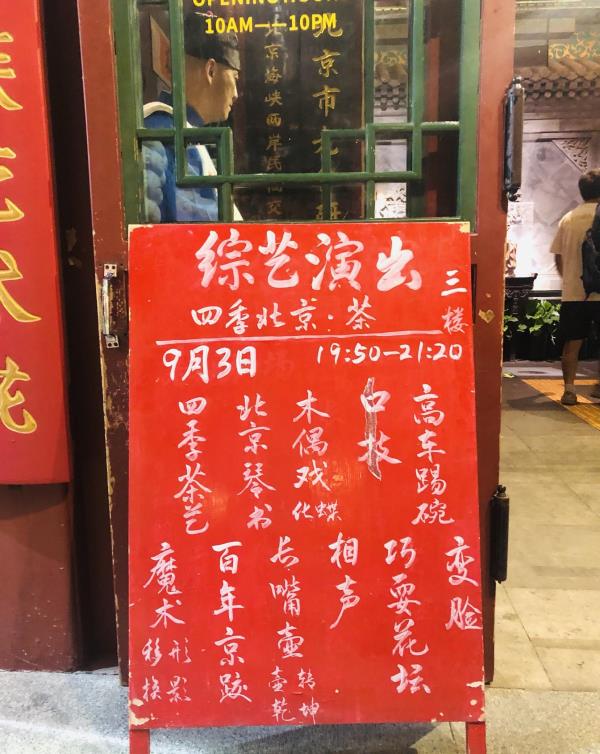 10AM——10PM
北京市
北京海峡两岸民
综艺演出
三楼
四季北京·茶
9月3日 19:50-21:20
四季茶艺
北京琴书
木偶戏
化蝶
口技
高车踢碗
魔术
移形
换影
百年京跤
长嘴壶
壶转
乾坤
相声
巧耍花坛
变脸